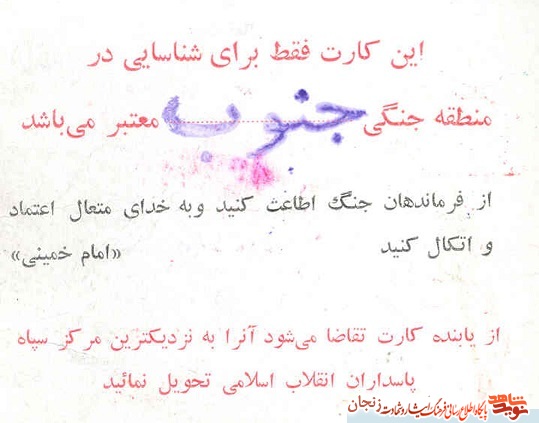 این کارت فقط برای شناسایی در
منطقه جنگی جنوب معتبر می‌باشد
از فرماندهان جنگ اطاعت کنید وبه خدای متعال اعتماد
و اتکال کنید «امام خمینی»
از یابنده کارت تقاضا می‌شود آنرا به نزدیکترین مرکز سپاه
پاسداران انقلاب اسلامی تحویل نمائید
نوید شاهد پایگاه اطلاع رسانی فرهنگ ایثار و شهادت زنجان